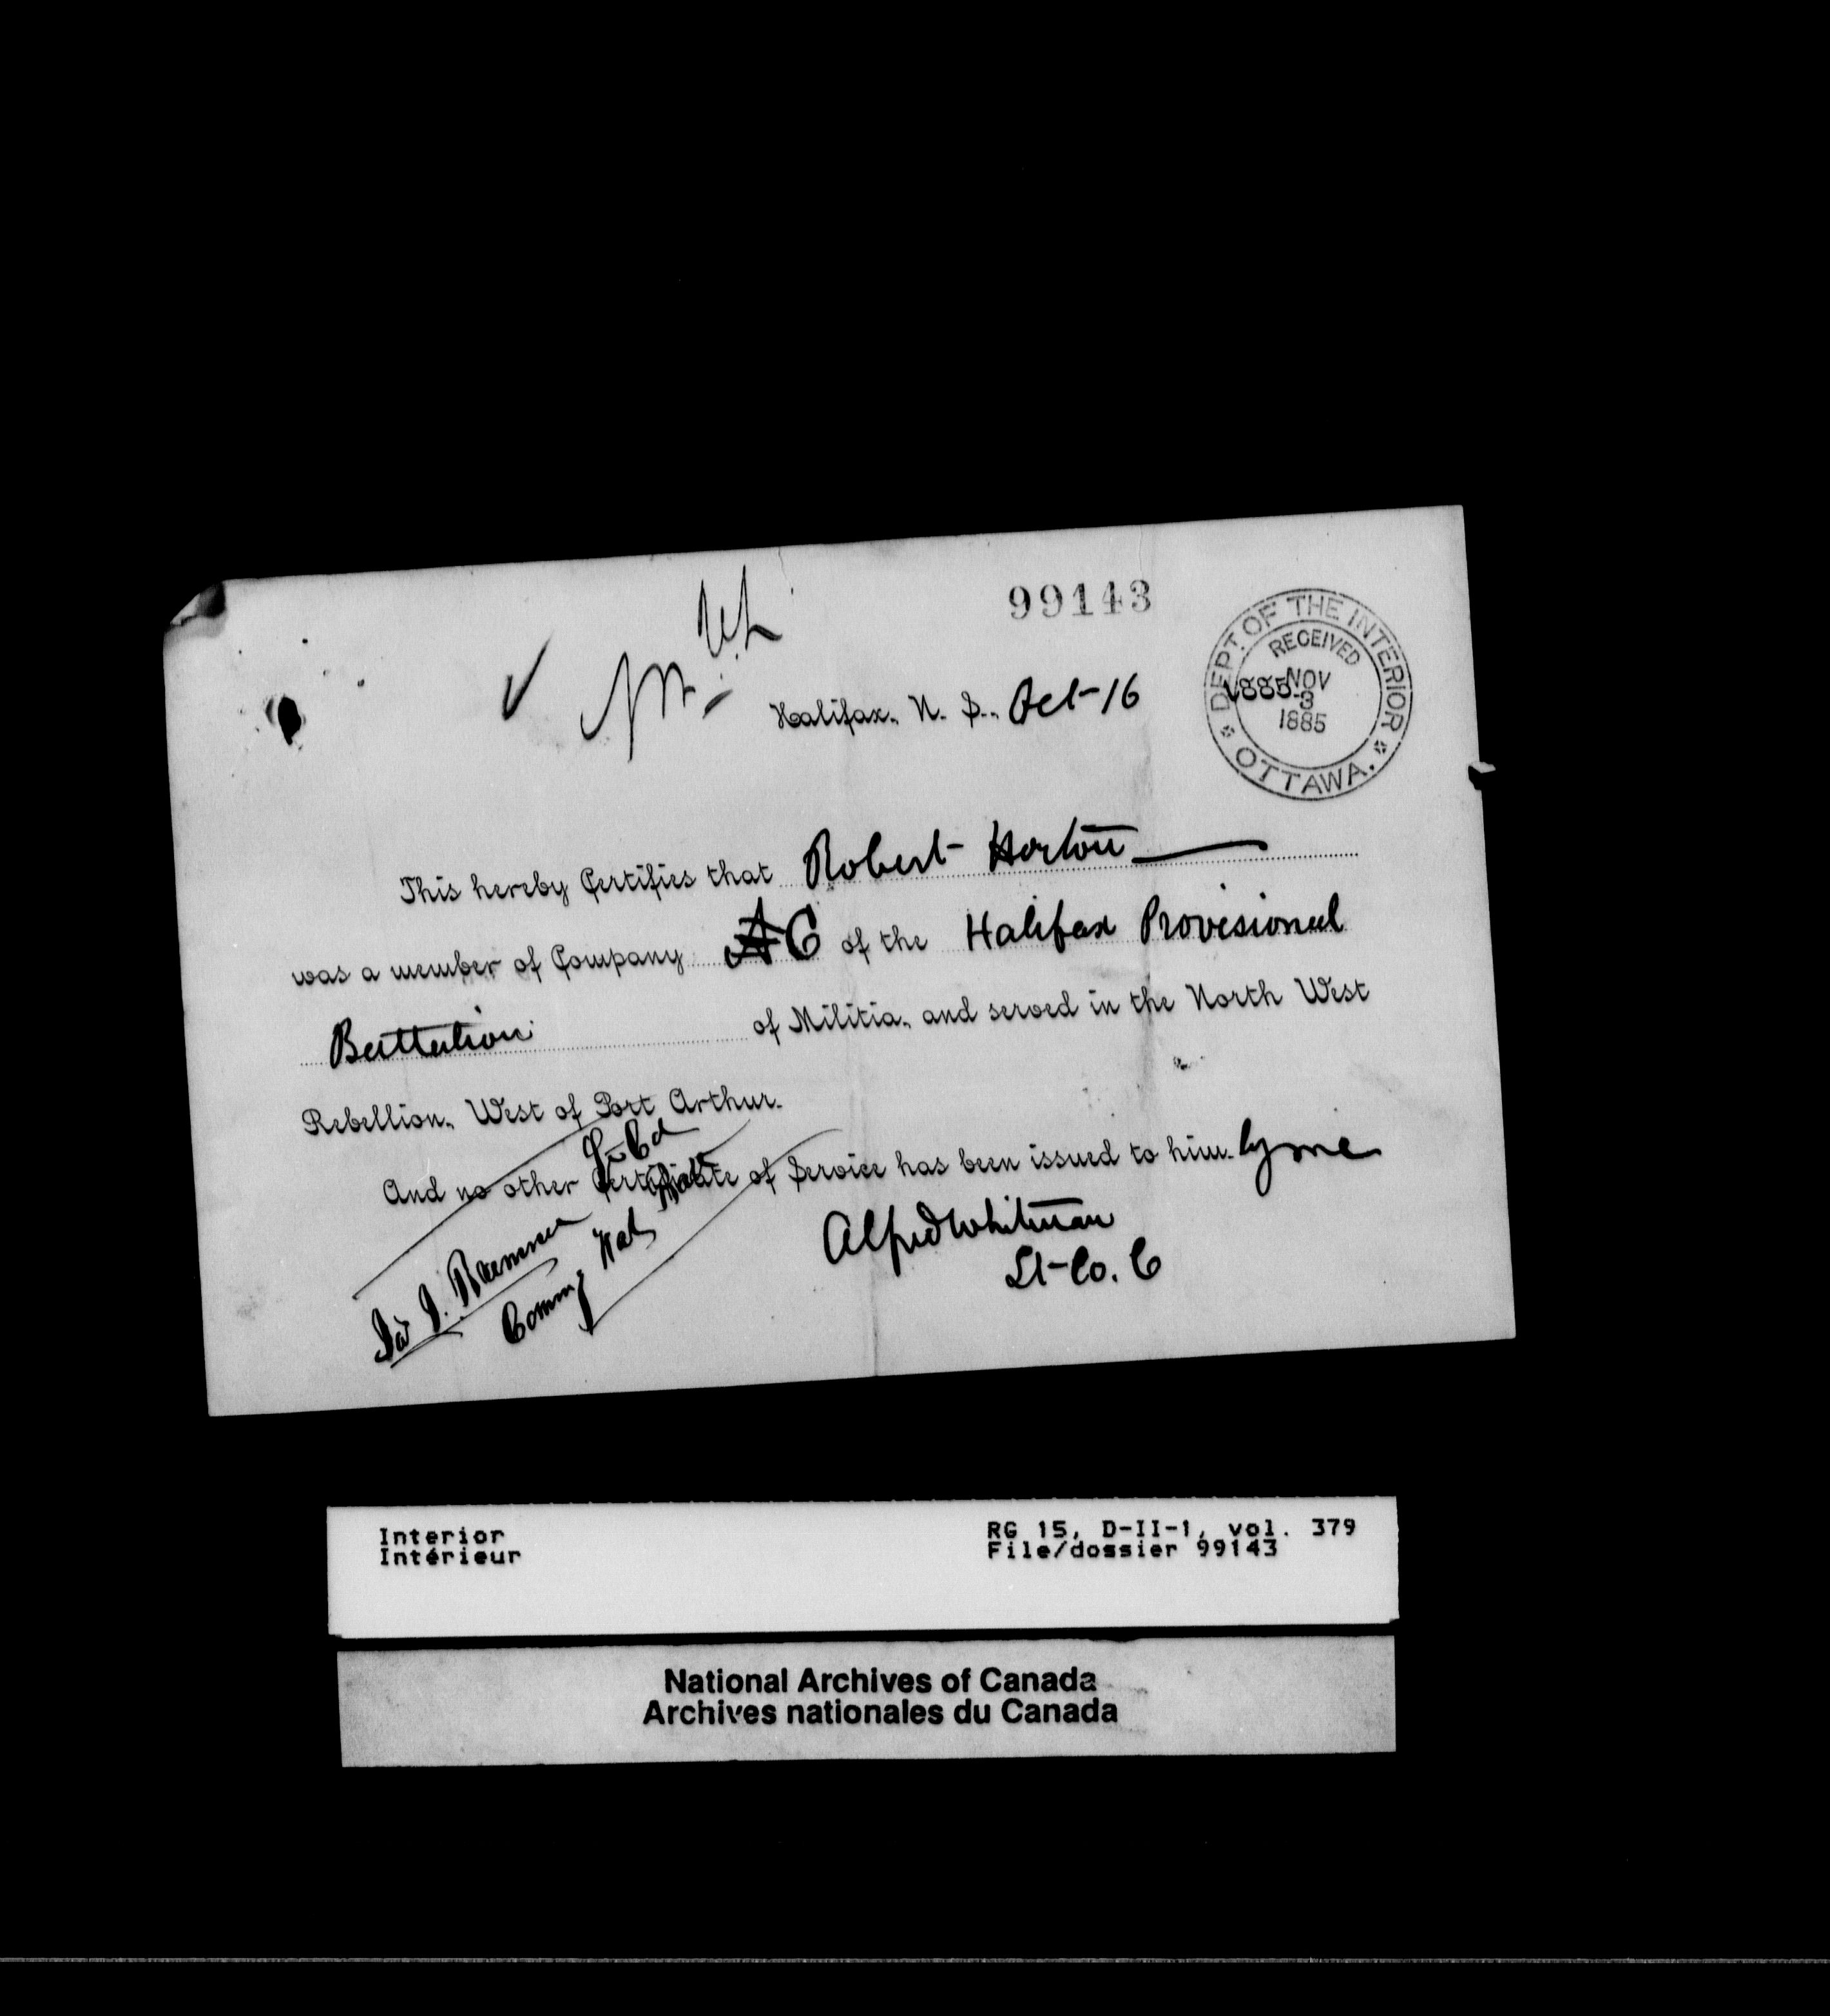 99143
DEPT. OF THE INTERIOR
RECEIVED
1885 NOV
3
1885
OTTAWA.
Halifax, N. S., Oct-16
This hereby Certifies that Robert Horton
was a member of Company A C of the Halifax Provisional
Battalion of Militia, and served in the North West
Rebellion, West of Port Arthur.
And no other Certificate of Service has been issued to him. by me
Alfred Whitman
Lt-Co. C
J. Bremner
Lt Col
Comm. Hal Batt
Interior
Intérieur
RG 15, D-II-1, vol. 379
File/dossier 99143
National Archives of Canada
Archives nationales du Canada